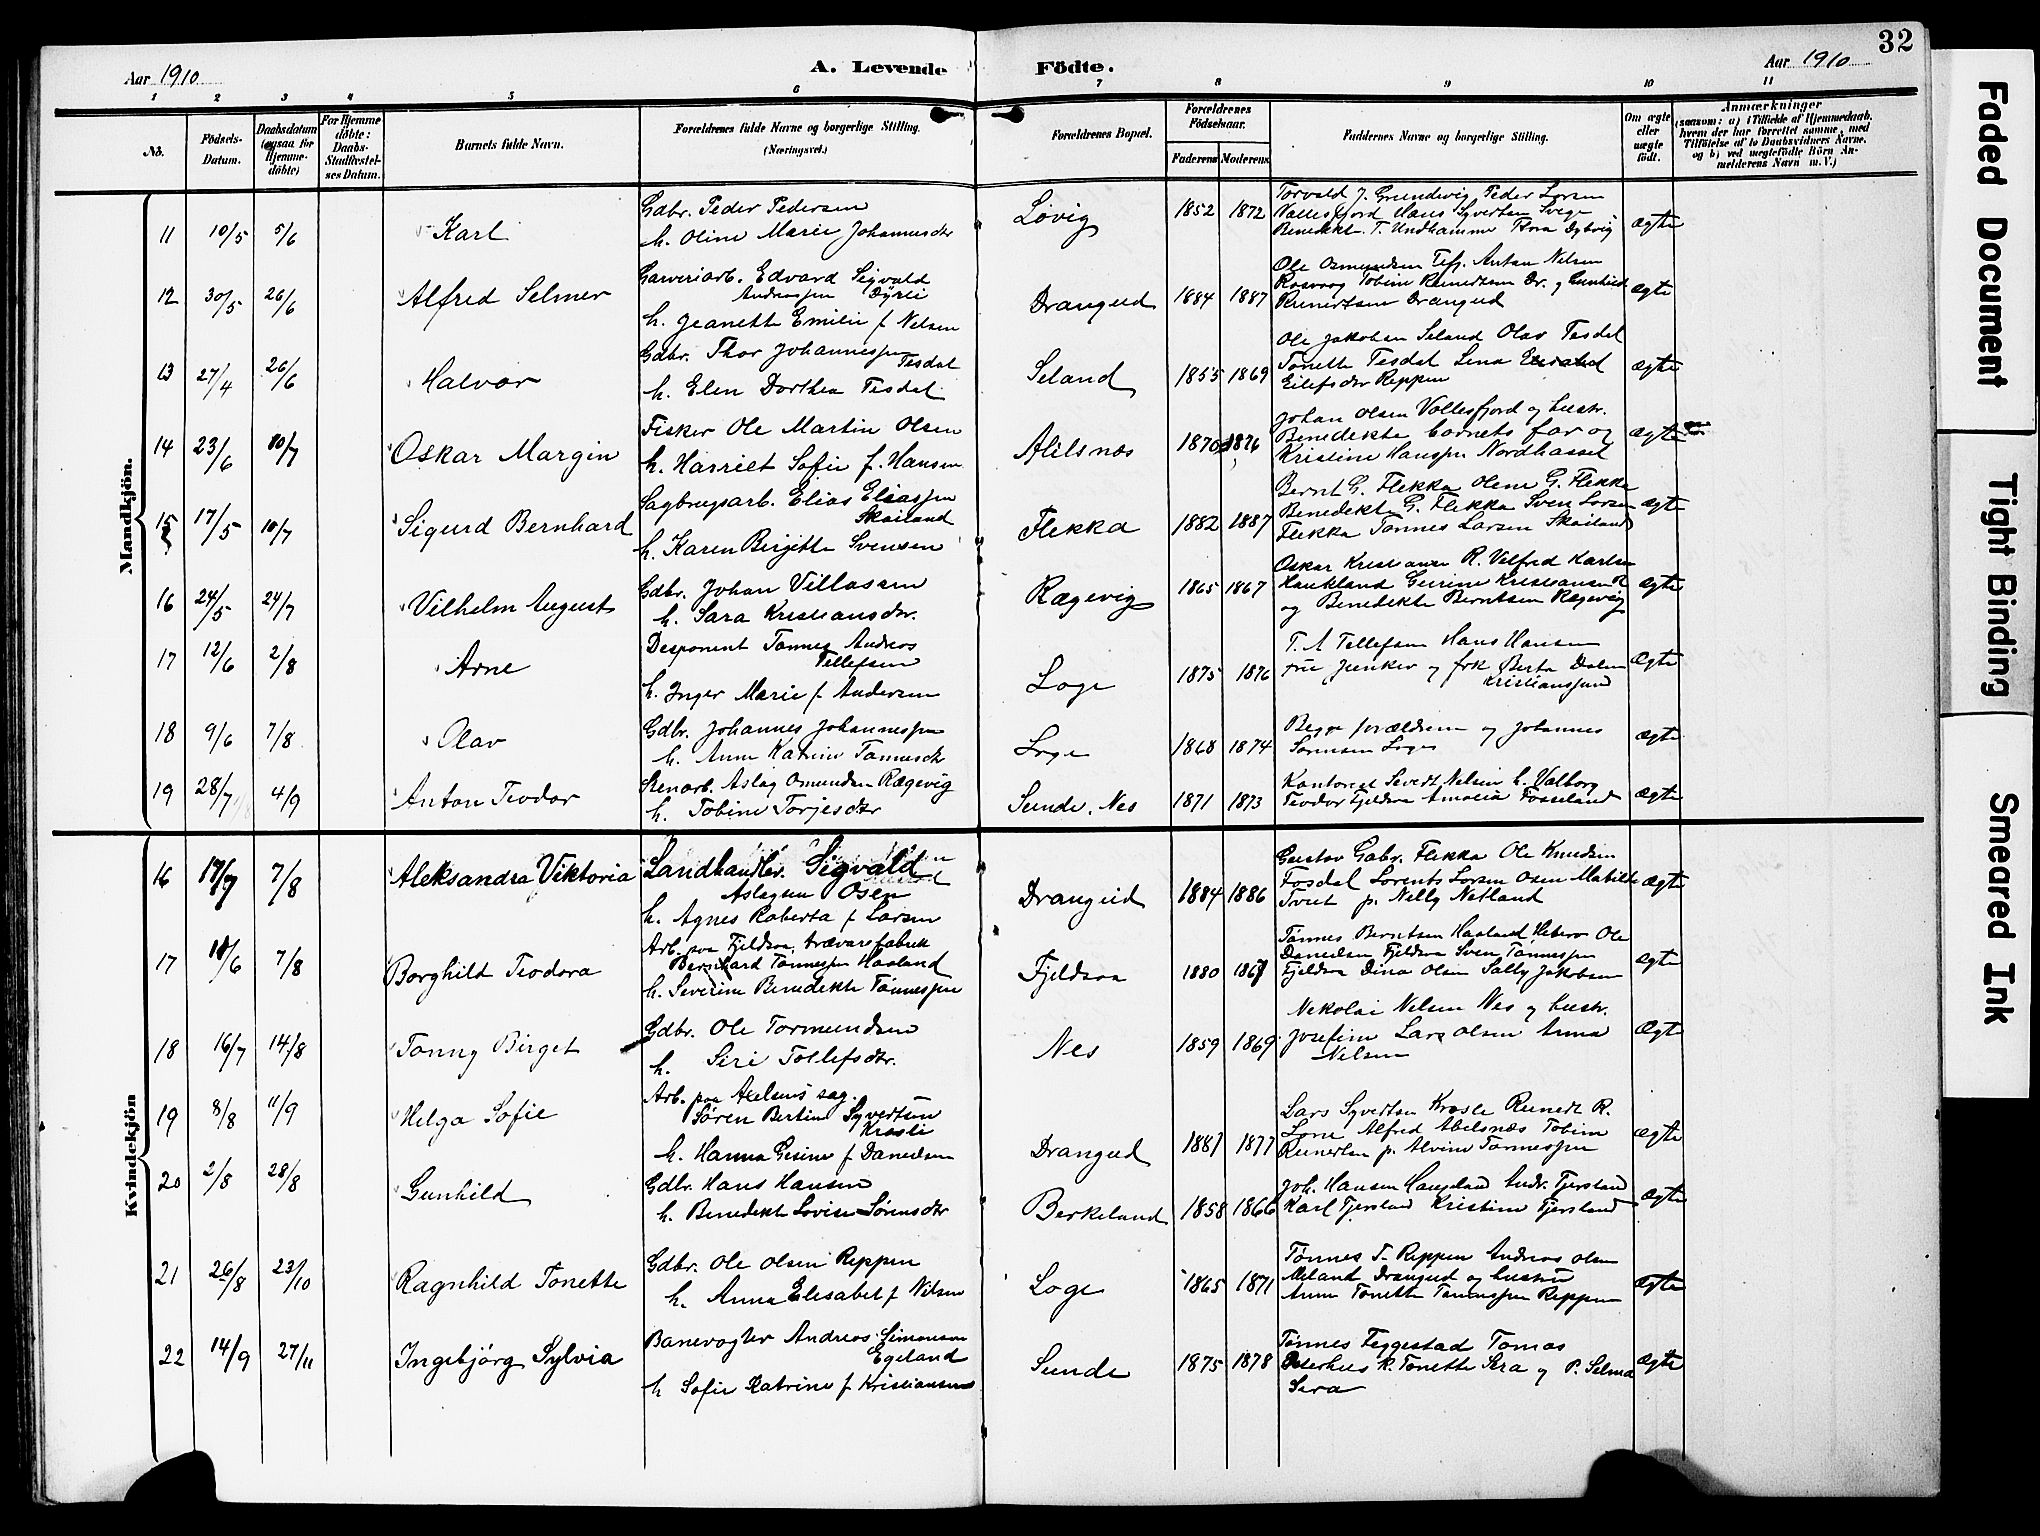 32
Aar 1910
A. Levende Födte.
Aar 1910
1 2 3 4 5 6 7 8 9 10 11
No.
Födsels-Datum.
Daabsdatum (ogsaa for Hjemme-döbte)
For Hjemme döbte: Daabs-Stadfæstel-ses Datum.
Barnets fulde Navn.
Forældrenes fulde Navne og borgerlige Stilling.
(Næringsvei.)
Forældrenes Bopæl.
Forældrenes Födselsaar.
Faderens Moderens
Faddernes Navne og borgerlige Stilling.
Om ægte eller uægte födt.
Anmærkninger
(saasom: a) i Tilfælde af Hjemmedaab,
hvem der har forrettet samme, med
Tilföielse af to Daabsvidners Navne,
og b) ved uægtefödte Börn An-
melderens Navn m. V.)
Mandkjön.
11 10/5 5/6 Karl
Gdbr. Peder Pedersen
h. Oline Marie Johannesdtr
Løvig 1852 1872
Torvald J. Grundevig Peder Larsen
Vollesfjord Hans Syvertsen Svege
Benedikte T. Undhamme Thora Dybvig
ægte
12 30/5 26/6 Alfred Selmer
Garveriarb. Edvard Sigvald
Andreassen Dyrli
h. Jeanette Emilie f. Nelsen
Drangeid 1884 1887
Ole Osmundsen Anton Nelsen
Rosvaag Tobine Reinertsen Dr. og Gunhild
Reinertsen Drangeid
ægte
13 27/4 26/6 Halvor
Gdbr. Thor Johannessen
Tesdal
h. Elen Dorthea Tesdal
Seland 1855 1869
Ole Jakobsen Seland Olav Tesdal
Tonette Tesdal Lena
Eilefsdtr Reppen
ægte
14 23/6 10/7 Oskar Margin
Fisker Ole Martin Olsen
h. Harriet Sofie f. Hansen
Abelsnæs 1870 1876
Johan Olsen Vollesfjord og hustr.
Benedikte barnets far og
Kristine Hanssen Nordhassel
ægte
15 17/5 10/7 Sigurd Bernhard
Sagbrugsarb. Elias Eliassen
Skailand
h. Karen Birgitte Svensen
Flekka 1882 1887
Bernt G. Flekka Olene G. Flekke
Benedikte G. Flekka Sven Larsen
Flekka Tønnes Larsen Skailand
ægte
16 24/5 24/7 Vilhelm August
Gdbr. Johan Villassen
h. Sara Kristiansdtr.
Rægevig 1865 1867
Oskar Kristiansen R. Vilfred Karlsen
Haukland Gurine Kristiansen R
og Benedikte Berntsen Rægevig
ægte
17 12/6 2/8 Arne
Disponent Tønnes Andreas
Tellefsen
h. Inger Marie f. Andersen
Loge 1875 1876
T. A. Tellefsen Hans Hansen
fru Junker og frk Berta Dalen
Kristianssund
ægte
18 9/6 7/8 Olav
Gdbr. Johannes Johannessen
h. Anne Katrine Tønnesdtr
Loge 1868 1874
Begge forældrene og Johannes
Sørensen Loge
ægte
19 28/7 4/9 Anton Teodor
Stenarb. Aslag Omundsen Rægevig
h. Tobine Torjesdtr
Sunde. Nes 1871 1873
Kontorist Sevedt Nelsen h. Valborg
Teodor Fjeldsa Amalia Fosseland
ægte
Kvindekjön
16 17/7 7/8 Aleksandra Viktoria
Landhandler. Sigvald
Aslagsen Osen
h. Agnes Roberta f. Larsen
Drangeid 1884 1886
Gustav Gabr. Flekka Ole Knudsen
Fosdal Lorents Larsen Osen Matilde
Tveit p. Nelly Netland
ægte
17 10/6 7/8 Borghild Teodora
Arb. paa Fjeldsaa trævarefabrik
Bernhard Tønnessen Haaland
h. Severine Benedikte Tønnessen
Fjeldsaa 1880
Tønnes Berntsen Haaland Ole
Danielsen Fjeldsaa Sven Tønnessen
Fjeldsa Dina Olsen Sally Jakobsen
ægte
18 16/7 14/8 Tonny Birget
Gdbr. Ole Tormundsen
h. Siri Tollefsdtr.
Nes 1859 1869
Nikolai Nelsen Nes og hustr.
Josefine Lars Olsen Anna
Nelsen
ægte
19 8/8 11/9 Helga Sofie
Arb. paa sag.
Søren Bertin Syvertsen
Krosli
h. Hanna Gesine f. Danielsen
Drangeid 1881 1877
Lars Syvertsen Krosle Reinert R.
Alfred Abelsnæs Tobine
Reinertsen p. Alvine Tønnessen
ægte
20 2/8 28/8 Gunhild
Gdbr. Hans Hansen
h. Benedikte Lovise Sørensdtr
Berkeland 1858 1866
Joh. Hansen Haugeland Andr. Tjersland
Karl Tjersland Kristine Tjersland
ægte
21 26/8 23/10 Ragnhild Tonette
Gdbr. Ole Olsen Reppen
h. Anna Elisabet f. Nilsen
Loge 1865 1871
Tønnes T. Reppen Andreas Olsen
Meland Drangeid og hustru
Anne Tonette Tønnessen Reppen
ægte
22 14/9 27/11 Ingebjørg Sylvia
Banevogter Andreas Simonsen
Egeland
h Sofie Katrine f. Kristiansen
Sunde 1875 1878
Tønnes Feggestad Tomas
Osterhus k. Tonette Sira og P. Selma
Sira
ægte
Faded Document
Tight Binding
Smeared Ink